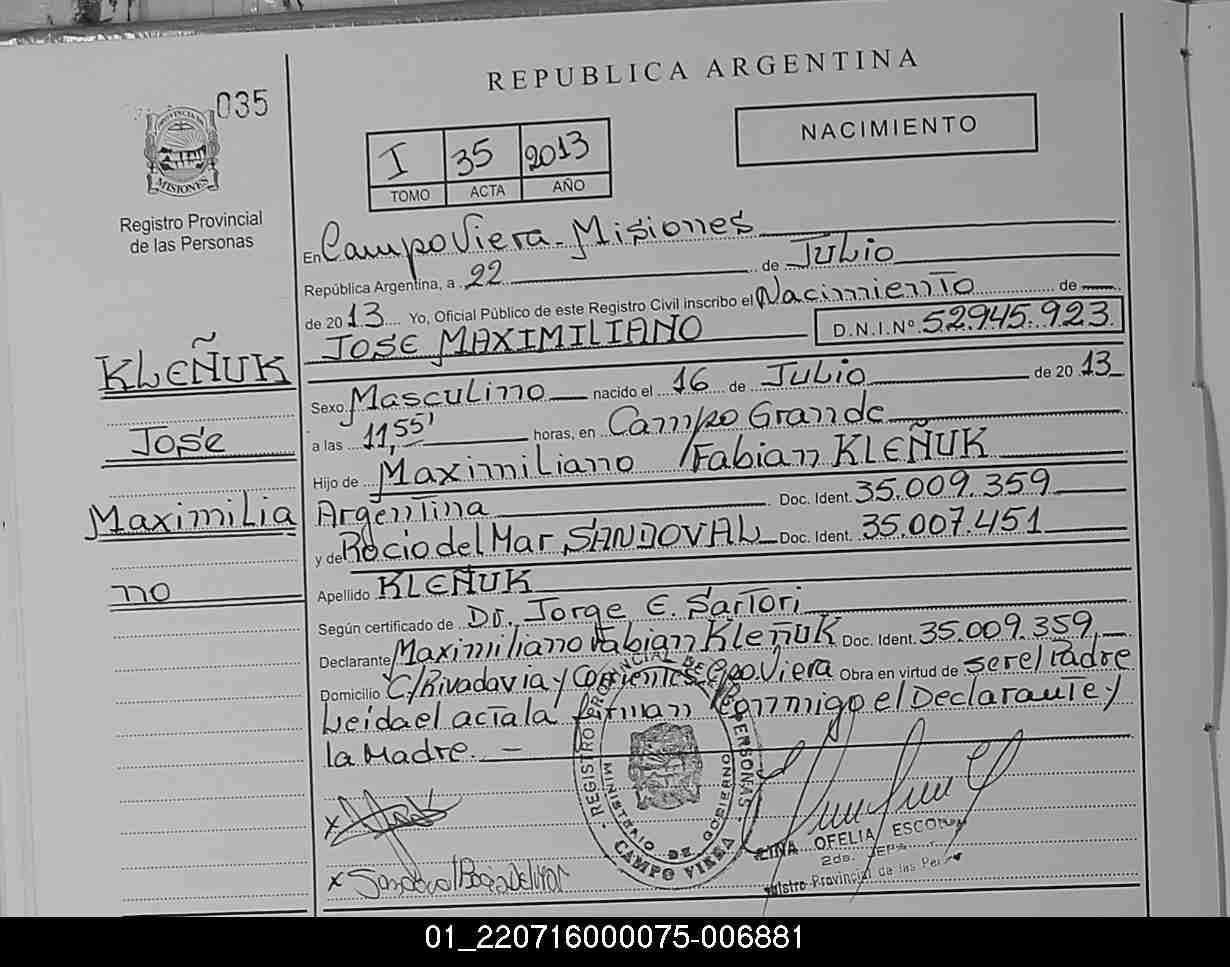 REPUBLICA ARGENTINA
035
NACIMIENTO
PROVINCIA DE
MISIONES
I 35 2013
TOMO ACTA AÑO
Registro Provincial
de las Personas
En Campo Viera - Misiones
República Argentina, a 22 de Julio
de 2013 Yo, Oficial Público de este Registro Civil inscribo el Nacimiento de
JOSE MAXIMILIANO D.N.I.Nº 52945.923
KLEÑUK
Sexo Masculino nacido el 16 de Julio de 2013
Jose
a las 11,55' horas, en Campo Grande
Hijo de Maximiliano Fabian KLEÑUK
Maximilia
Argentina Doc. Ident. 35.009.359
y de Rocio del Mar SANDOVAL Doc. Ident. 35.007.451
no
Apellido KLEÑUK
Según certificado de Dr. Jorge E. Sartori
Declarante Maximiliano Fabian Kleñuk Doc. Ident. 35.009.359
Domicilio C/Rivadavia y Corrientes Cpo Viera Obra en virtud de ser el Padre
Leida el acta la firman conmigo el Declarante y
la Madre. —
REGISTRO PROVINCIAL DE LAS PERSONAS
MINISTERIO DE GOBIERNO
CAMPO VIERA
x
OFELIA
x Sandoval Rocio Del Mar
Provincial de las
01_220716000075-006881